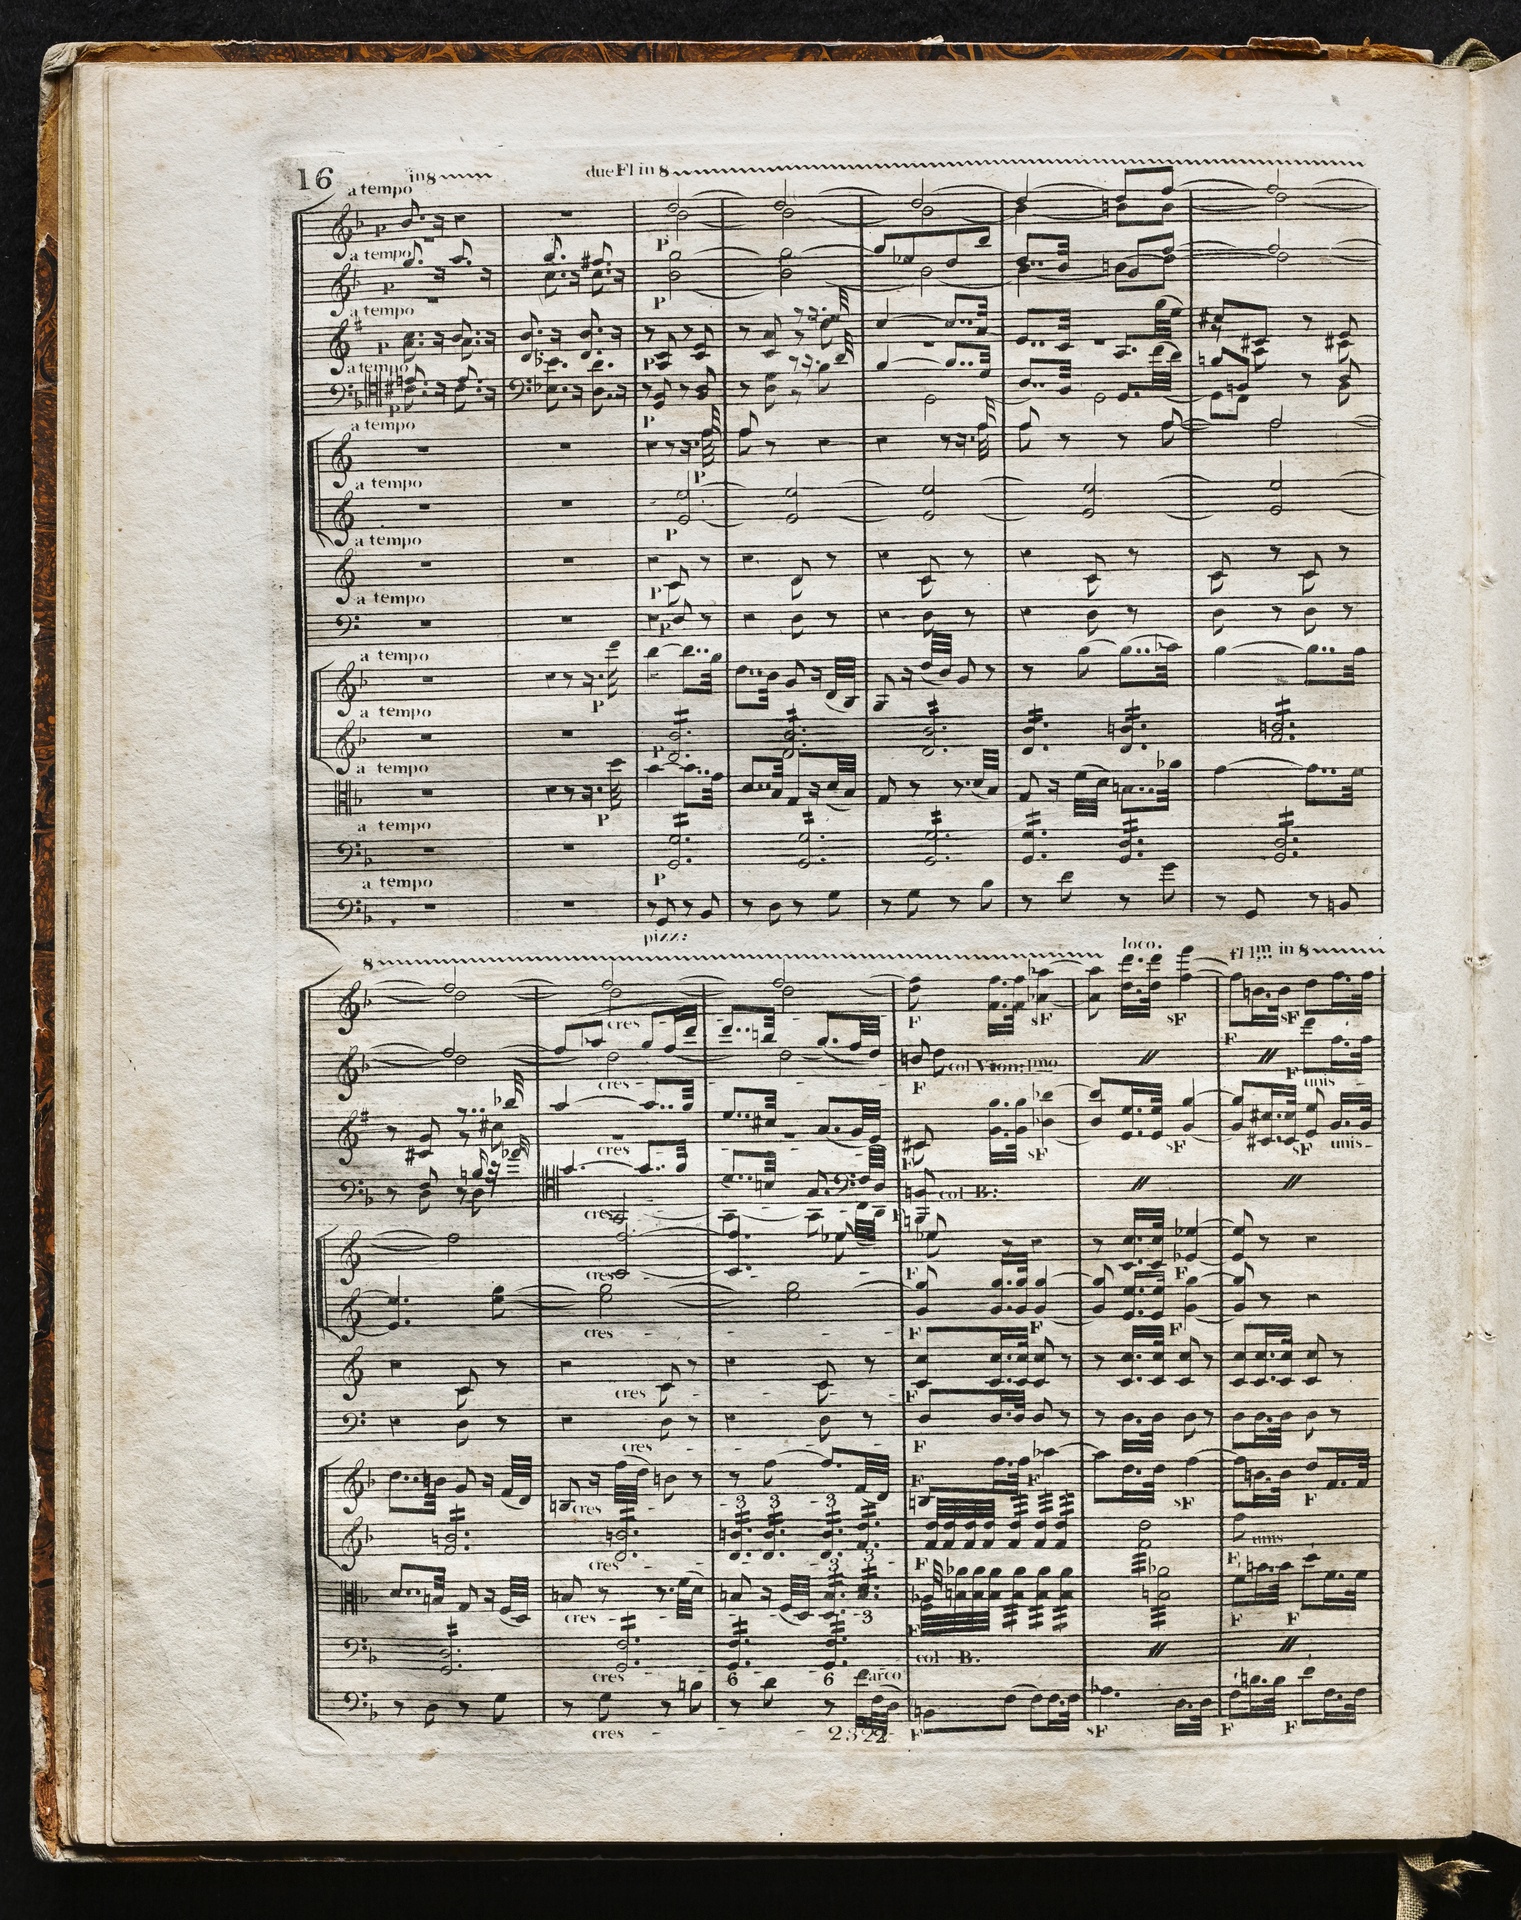 16
in 8
due Fl in 8
a tempo
P
a tempo
P
P
a tempo
P
P
a tempo
P
P
a tempo
P
a tempo
P
a tempo
P
a tempo
P
a tempo
P
a tempo
P
a tempo
P
a tempo
P
a tempo
pizz:
8
loco.
in 8
cres
F
sF
sF
F
sF
cres
F
col Vion: pmo
F
unis
cres
F
sF
sF
sF
unis
cres
F
col B:
cres
F
F
cres
F
F
F
cres
F
cres
F
cres
F
F
sF
F
3 3 3
cres
F
unis
3 3
cres
3
F
F
F
F
col B.
cres
6 6
arco
cres
F
sF
F
F
2322